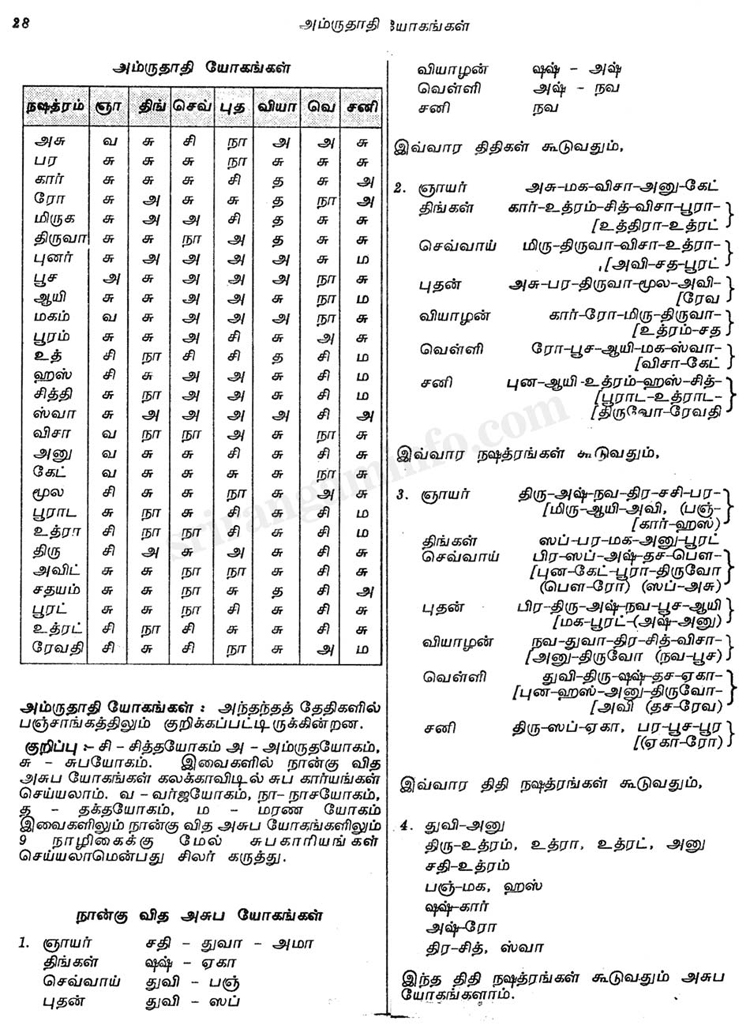 28
அம்ருதாதி யோகங்கள்
அம்ருதாதி யோகங்கள்
நஷத்ரம் ஞா திங் செவ் புத வியா வெ சனி
அசு வ சு சி நா அ அ சு
பர சு சு சு நா சு சு சு
கார் சு சு சு சி த சு அ
ரோ சு அ சு சு த நா அ
மிருக சு அ அ சி த சு சு
திருவா சு சு நா அ த சு சு
புனர் சு அ அ அ அ சு ம
பூச அ சு அ அ அ நா சு
ஆயி சு சு அ அ சு நா ம
மகம் வ சு அ அ அ நா சு
பூரம் சு சு அ சி சு அ சு
உத் சி நா சி சி த சி ம
ஹஸ் சி சு அ அ சு சி ம
சித்தி சு நா அ அ சு சி ம
ஸ்வா சு அ அ அ அ சி அ
விசா வ நா நா அ சு நா சு
அனு வ சு சு சு சு சி சு
கேட் வ சு சு சு சு நா சு
மூல சி சு சு நா சு அ சு
பூராட சு நா சு சி சு சி ம
உத்ரா சி நா நா சி சு சி சு
திரு சி அ சு அ சு சி சு
அவிட் சு சு நா நா சு சி சு
சதயம் சு சு நா சு த சி அ
பூரட் சு சு நா சி சு சி சு
உத்ரட் சி நா சி சு சு சி சு
ரேவதி சி சு சி நா சு அ ம
அம்ருதாதி யோகங்கள் : அந்தந்தத் தேதிகளில்
பஞ்சாங்கத்திலும் குறிக்கப்பட்டிருக்கின்றன.
குறிப்பு :- சி - சித்தயோகம் அ - அம்ருதயோகம்,
சு - சுபயோகம். இவைகளில் நான்கு வித
அசுப யோகங்கள் கலக்காவிடில் சுப கார்யங்கள்
செய்யலாம். வ - வர்ஜயோகம், நா- நாசயோகம்,
த - தக்தயோகம், ம - மரண யோகம்
இவைகளிலும் நான்கு வித அசுப யோகங்களிலும்
9 நாழிகைக்கு மேல் சுபகாரியங்கள்
செய்யலாமென்பது சிலர் கருத்து.
நான்கு வித அசுப யோகங்கள்
1. ஞாயர் சதி - துவா - அமா
திங்கள் ஷஷ் - ஏகா
செவ்வாய் துவி - பஞ்
புதன் துவி - ஸப்
வியாழன் ஷஷ் - அஷ்
வெள்ளி அஷ் - நவ
சனி நவ
இவ்வார திதிகள் கூடுவதும்,
2. ஞாயர் அசு-மக-விசா-அனு-கேட்
திங்கள் கார்-உத்ரம்-சித்-விசா-பூரா-}
[உத்திரா-உத்ரட்
செவ்வாய் மிரு-திருவா-விசா-உத்ரா-}
[அவி-சத-பூரட்
புதன் அசு-பர-திருவா-மூல-அவி-}
[ரேவ
வியாழன் கார்-ரோ-மிரு-திருவா-}
[உத்ரம்-சத
வெள்ளி ரோ-பூச-ஆயி-மக-ஸ்வா-}
[விசா-கேட்
சனி புன-ஆயி-உத்ரம்-ஹஸ்-சித்-}
[பூராட-உத்ராட-
[திருவோ-ரேவதி
இவ்வார நஷத்ரங்கள் கூடுவதும்,
3. ஞாயர் திரு-அஷ்-நவ-திர-சசி-பர-}
[மிரு-ஆயி-அவி, (பஞ்-
[கார்-ஹஸ்)
திங்கள் ஸப்-பர-மக-அனு-பூரட்
செவ்வாய் பிர-ஸப்-அஷ்-தச-பௌ-}
[புன-கேட்-பூரா-திருவோ
(பௌ-ரோ) (ஸப்-அசு)
புதன் பிர-திரு-அஷ்-நவ-பூச-ஆயி}
[மக-பூரட்-(அஷ்-அனு)
வியாழன் நவ-துவா-திர-சித்-விசா-}
[அனு-திருவோ (நவ-பூச)
வெள்ளி துவி-திரு-ஷஷ்-தச-ஏகா-}
[புன-ஹஸ்-அனு-திருவோ-
[அவி (தச-ரேவ)
சனி திரு-ஸப்-ஏகா, பர-பூச-பூர}
[(ஏகா-ரோ)
இவ்வார திதி நஷத்ரங்கள் கூடுவதும்,
4. துவி-அனு
திரு-உத்ரம், உத்ரா, உத்ரட், அனு
சதி-உத்ரம்
பஞ்-மக, ஹஸ்
ஷஷ்-கார்
அஷ்-ரோ
திர-சித், ஸ்வா
இந்த திதி நஷத்ரங்கள் கூடுவதும் அசுப
யோகங்களாம்.
srirangaminfo.com